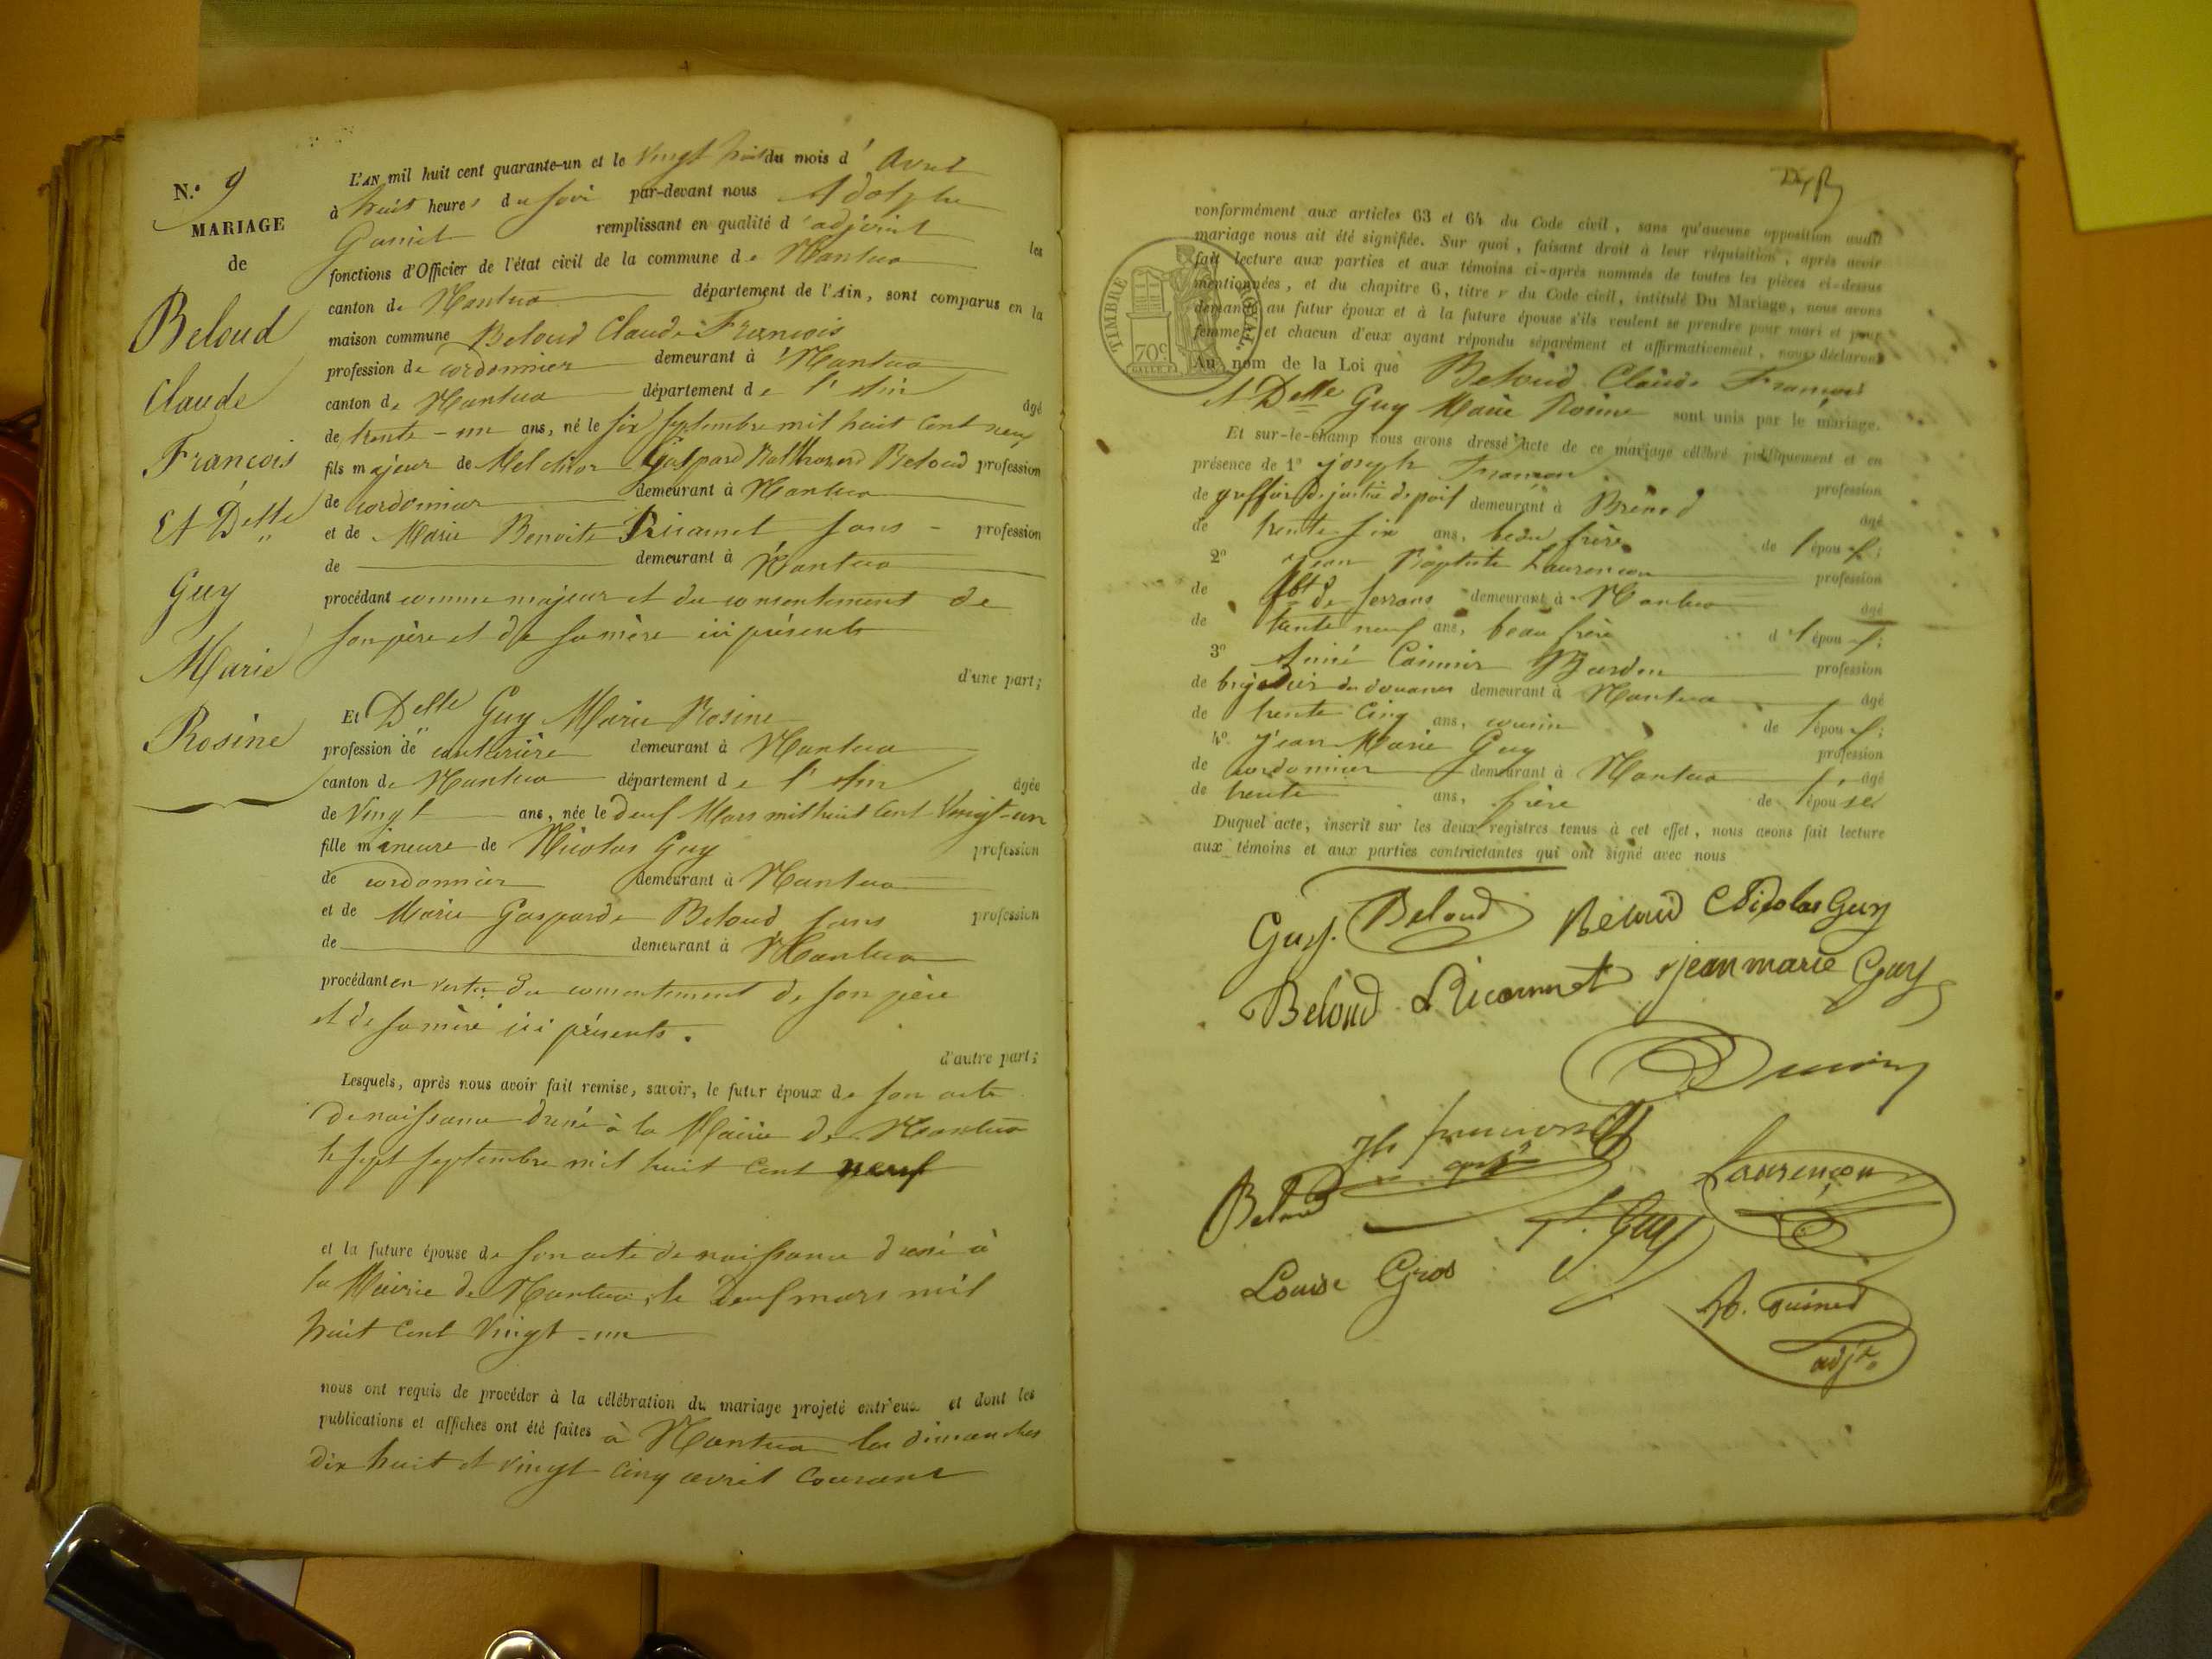 N.º 9
MARIAGE
de
Beloud
Claude
François
Et Delle
Guy
Marie
Rosine
L'AN mil huit cent quarante-un et le vingt huit du mois d'Avril
à huit heures du soir par-devant nous Adolphe
remplissant en qualité d'adjoint les
fonctions d'Officier de l'état civil de la commune de Nantua
canton de Nantua département de l'Ain, sont comparus en la
maison commune Beloud Claude François
profession de cordonnier demeurant à Nantua
canton de Nantua département de l'Ain âgé
de trente-un ans, né le six septembre mil huit cent neuf
fils majeur de Melchior Gaspard Balthazard Beloud profession
de cordonnier demeurant à Nantua
et de Marie Benoite Ricamet sans profession
de demeurant à Nantua
procédant comme majeur et du consentement de
son père et de sa mère ici présents
d'une part;
Et Delle Guy Marie Rosine
profession de couturière demeurant à Nantua
canton de Nantua département de l'Ain âgée
de vingt ans, née le deuf Mars mil huit cent vingt-un
fille mineure de Nicolas Guy profession
de cordonnier demeurant à Nantua
et de Marie Gasparde Beloud sans profession
de demeurant à Nantua
procédant en vertu du consentement de son père
et de sa mère ici présents.
d'autre part;
Lesquels, après nous avoir fait remise, savoir, le futur époux de son acte
de naissance dressé à la Mairie de Nantua
le sept septembre mil huit cent neuf
et la future épouse de son acte de naissance dressé à
la Mairie de Nantua, le deuf mars mil
huit cent vingt-un
nous ont requis de procéder à la célébration du mariage projeté entr'eux et dont les
publications et affiches ont été faites à Nantua les dimanches
dix huit et vingt cinq avril courant
conformément aux articles 63 et 64 du Code civil, sans qu'aucune opposition audit
mariage nous ait été signifiée. Sur quoi, faisant droit à leur réquisition, après avoir
fait lecture aux parties et aux témoins ci-après nommés de toutes les pièces ci-dessus
mentionnées, et du chapitre 6, titre v du Code civil, intitulé Du Mariage, nous avons
demandé au futur époux et à la future épouse s'ils veulent se prendre pour mari et pour
femme; et chacun d'eux ayant répondu séparément et affirmativement, nous déclarons
TIMBRE ROYAL
70c
Au nom de la Loi que Beloud Claude François
et Delle Guy Marie Rosine sont unis par le mariage.
Et sur-le-champ nous avons dressé acte de ce mariage célébré publiquement et en
présence de 1º Joseph
profession
de greffier de justice de paix demeurant à Brénod âgé
de trente six ans, beau frère de l'époux;
2º Jean Baptiste Laurençon profession
de demeurant à Nantua âgé
de trente neuf ans, beau frère d l'époux;
3º Aimé Casimir Bardon profession
de brigadier des douanes demeurant à Nantua âgé
de trente cinq ans, cousin de l'époux;
4º Jean Marie Guy profession
de cordonnier demeurant à Nantua âgé
de trente ans, frère de l'épouse
Duquel acte, inscrit sur les deux registres tenus à cet effet, nous avons fait lecture
aux témoins et aux parties contractantes qui ont signé avec nous
Guy. Beloud Beloud Nicolas Guy
Beloud Ricamet jean marie Guy
Beloud
Laurençon
Guy
Louise Gros
adjt.